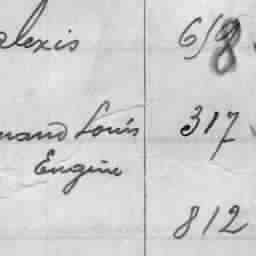 alexis 618
mand Louis 317
Eugène
812